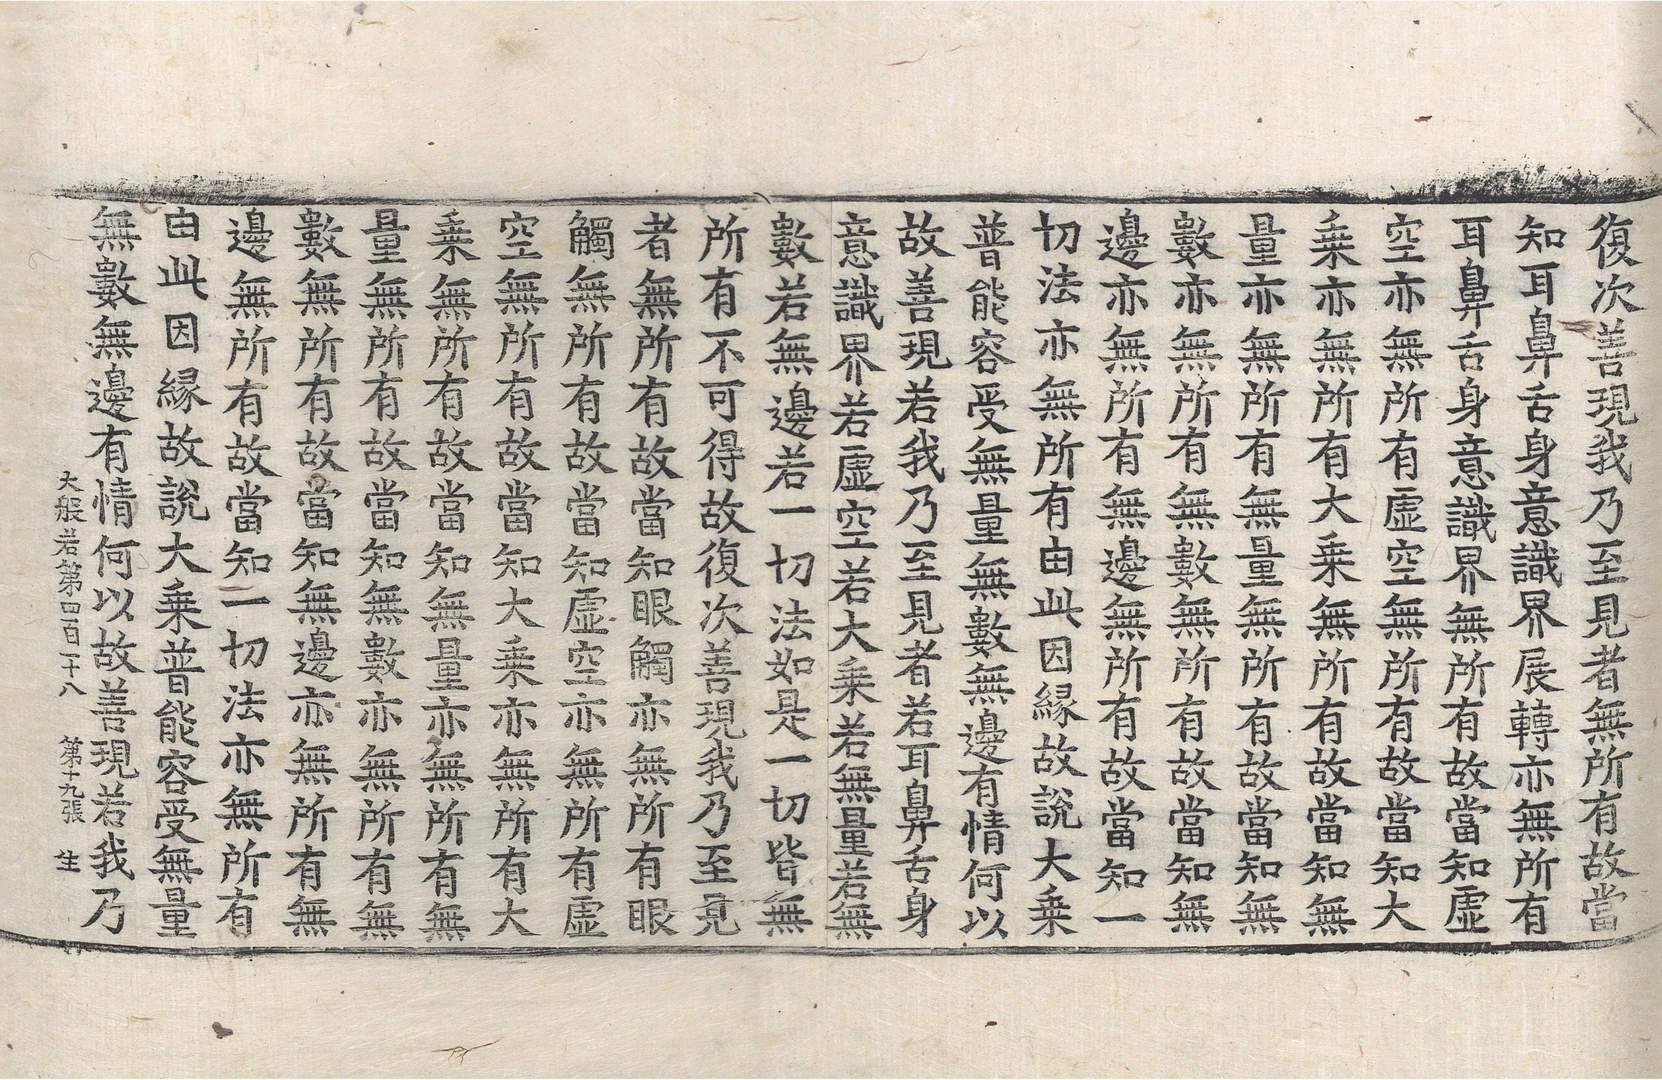 復次善現我乃至見者無所有故當
知耳鼻舌身意識界展轉亦無所有
耳鼻舌身意識界無所有故當知虛
空亦無所有虛空無所有故當知大
乗亦無所有大乗無所有故當知無
量亦無所有無量無所有故當知無
數亦無所有無數無所有故當知無
邊亦無所有無邊無所有故當知一
切法亦無所有由此因縁故說大乗
普能容受無量無數無邊有情何以
故善現若我乃至見者若耳鼻舌身
意識界若虛空若大乗若無量若無
數若無邊若一切法如是一切皆無
所有不可得故復次善現我乃至見
者無所有故當知眼觸亦無所有眼
觸無所有故當知虛空亦無所有虛
空無所有故當知大乗亦無所有大
乗無所有故當知無量亦無所有無
量無所有故當知無數亦無所有無
數無所有故當知無邊亦無所有無
邊無所有故當知一切法亦無所有
由此因縁故說大乗普能容受無量
無數無邊有情何以故善現若我乃
大般若第四百一十八 第十九張 生